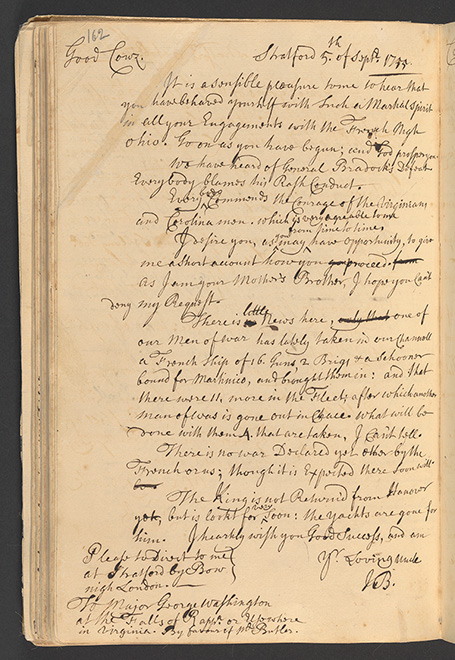 162
Good Couz.
Stratford 5.th of Sept.r 1755
It is a sensible pleasure to me to hear that
you have behaved yourself with such a Martial Spirit
in all your Engagements with the French Nigh
Ohio. Go on as you have begun; and God prosper you
We have heard of General Bradock's Defeat
Everybody blames his Rash Conduct.
Everybody Commends the Courage of the Virginians
and Carolina men. which is very agreable to me
I desire you, as you may have opportunity, to give
from time to time
me a short account how you proceed
as I am your Mother's Brother, I hope you Can't
deny my Request.
There is little News here, only that one of
our Men of war has lately taken in our Channell
a French Ship of 16. Guns, 2 Brigs & a Schooner
bound for Martinico, and brought them in: and that
there were 11. more in the Fleet; after which another
man of war is gone out in Chace. What will be
done with them 4. that are taken, I Can't tell.
There is no war Declared yet either by the
French or us; though it is Expected there Soon will
The King is not Return'd from Hanover
yet, but is lookt for very Soon: the yachts are gone for
him. I hearkly wish you Good Success, and am
Please to direct to me
at Stratford by Bow
nigh London.
Yr. Loving uncle
JB.
To Major George Washington
at the Falls of Rapp.a or Elsewhere
in Virginia. By favour of Mr. Butler.